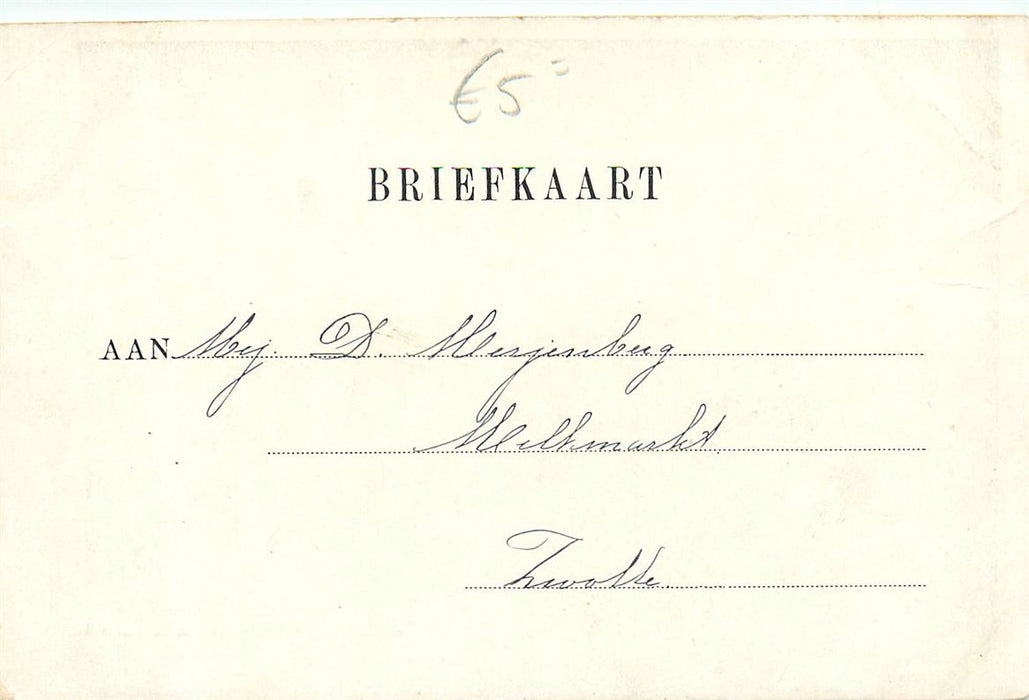 €5=
BRIEFKAART
AAN Mej. D. Merjenberg
Melkmarkt.
Zwolle.